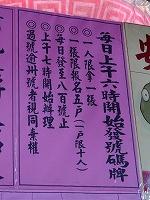 每日上午六時開始發號碼牌
◎一人限拿一張
◎一張限報名五戶(一戶限十人)
◎每日發至八百號止
◎上午七時開始辦理
◎過號逾卅號者視同棄權